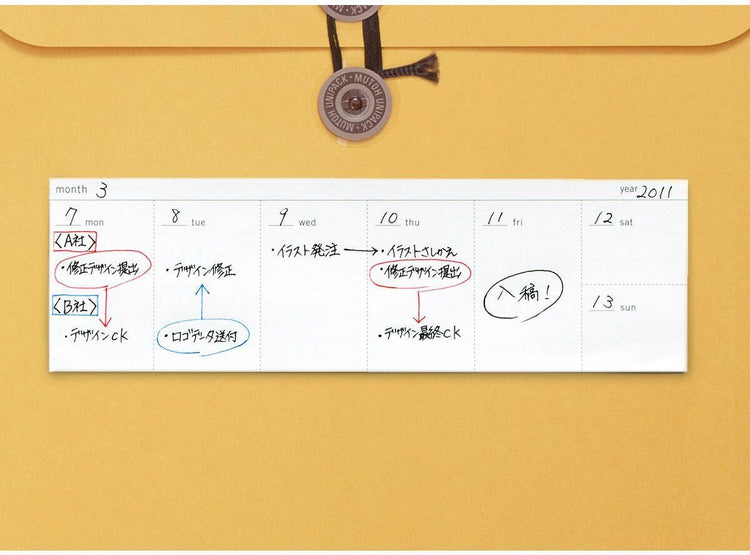 MUTOH UNIPACK · MUTOH UNIPACK ·
month 3
year 2011
7 mon
〈A社〉
・修正デザイン提出
〈B社〉
・デザインCK
8 tue
・デザイン修正
・ロゴデータ送付
9 wed
・イラスト発注
10 thu
・イラストさしかえ
・修正デザイン提出
・デザイン最終CK
11 fri
入稿!
12 sat
13 sun